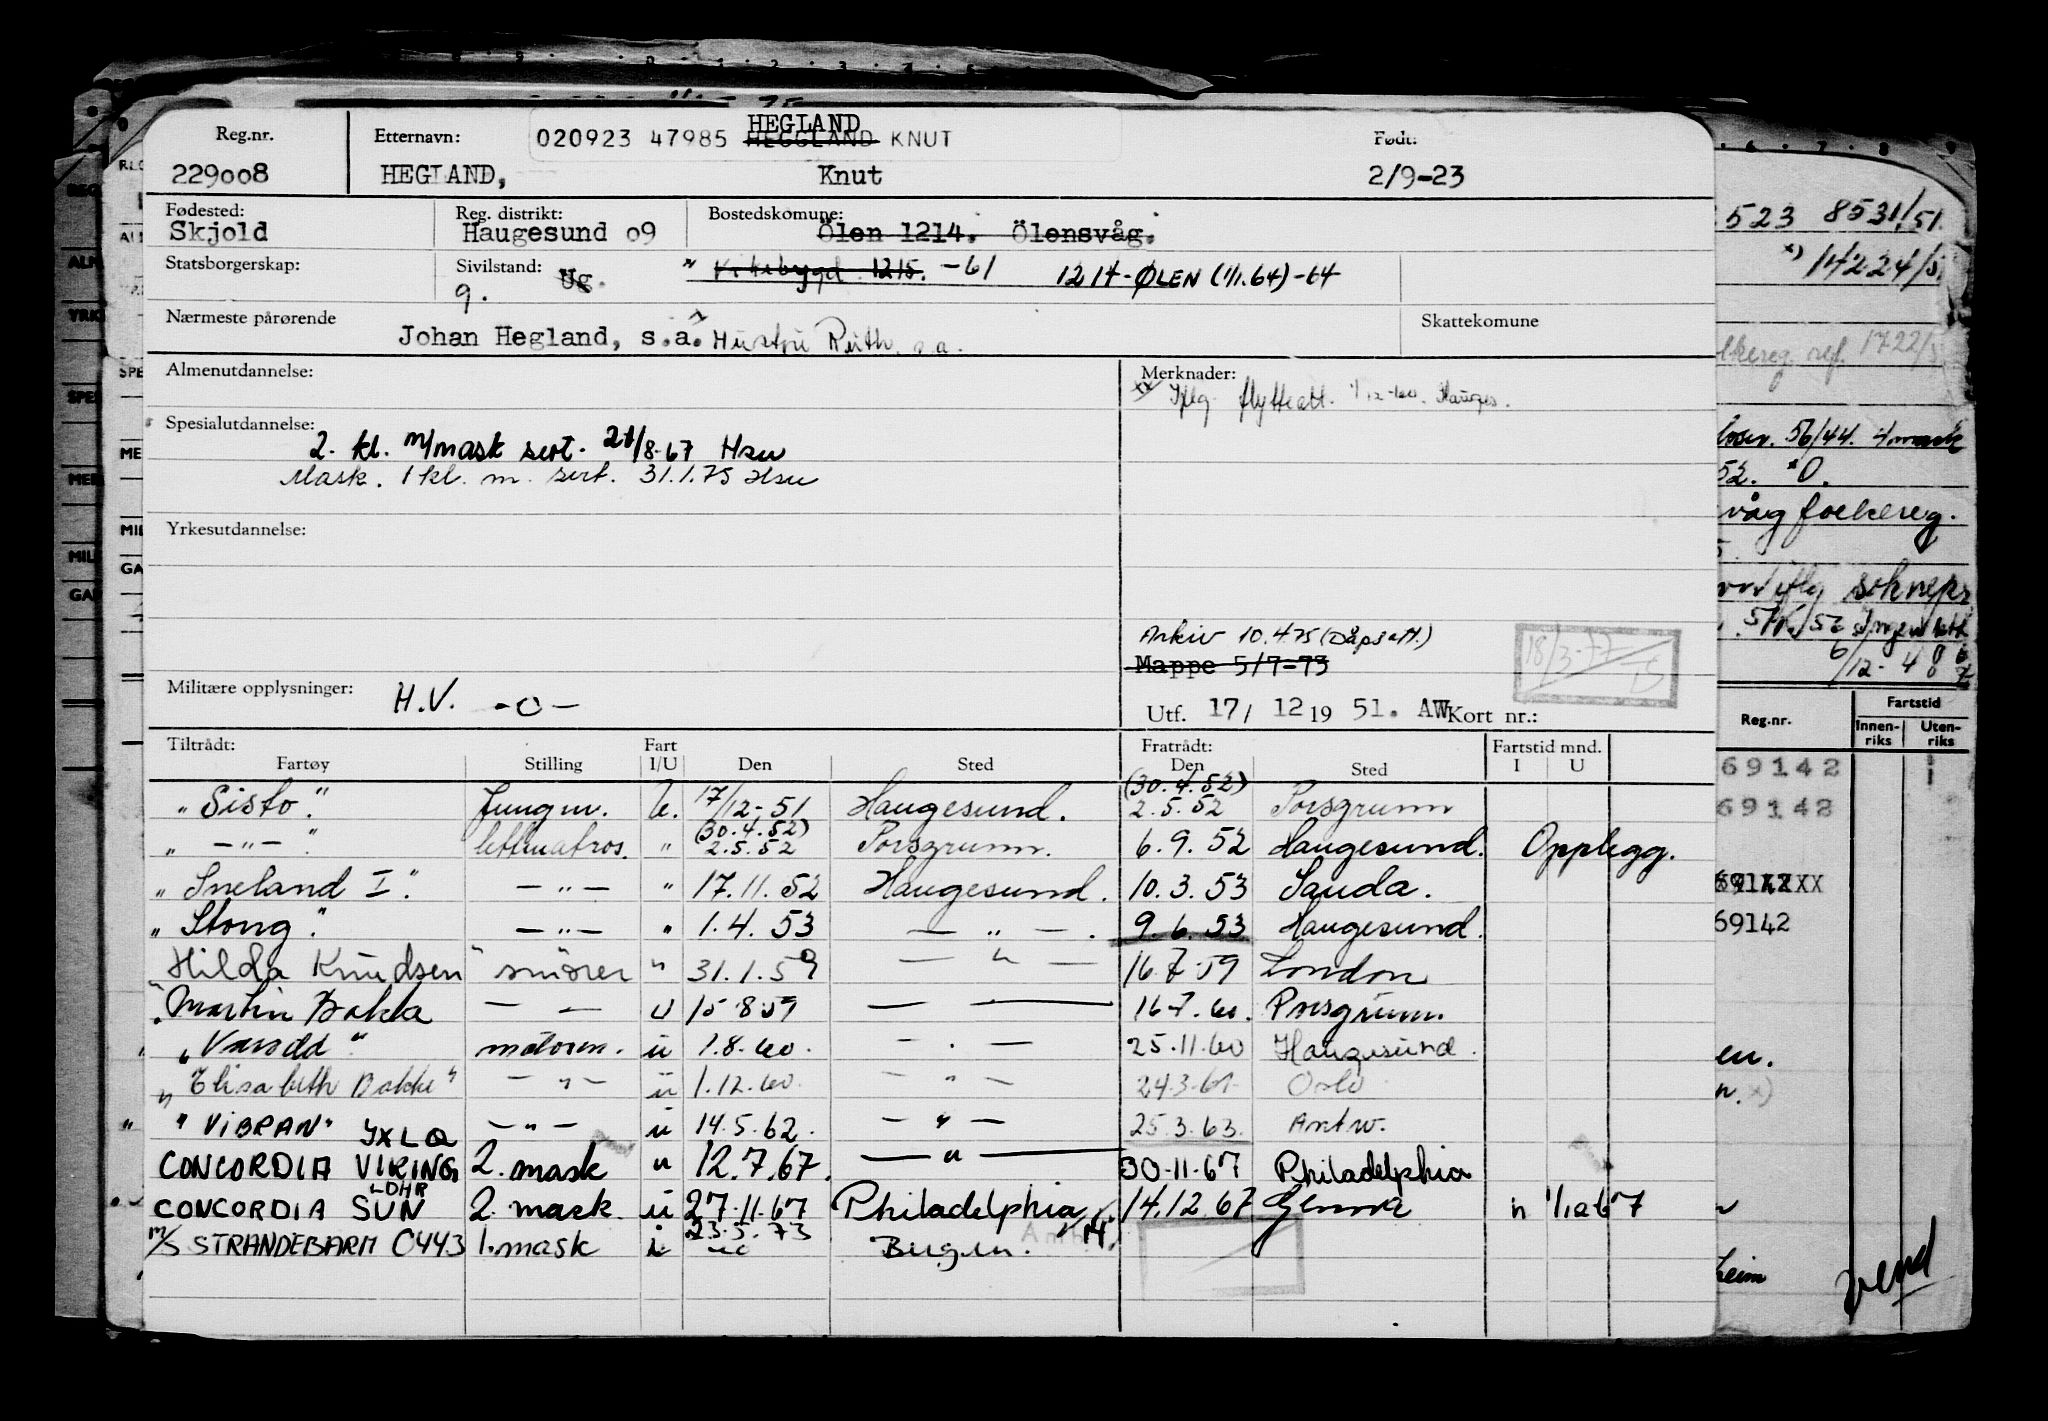 Reg.nr. Etternavn: 020923 47985 HEGGLAND KNUT Født:
HEGLAND
229008 HEGLAND, Knut 2/9-23
Fødested: Reg. distrikt: Bostedskomune:
Skjold Haugesund 09 Ölen 1214. Ölensvåg.
Statsborgerskap: Sivilstand: Ug. " Vikebygd 1215. -61 1214-ØLEN (1/1.64)-64
9.
Nærmeste pårørende Skattekomune
Johan Hegland, s.a. Hustru Ruth s.a.
Almenutdannelse: Merknader:
Iflg. flytteatt. 1/12-60. Hauges.
Spesialutdannelse:
2. kl. m/mask sert. 21/8-67 Hsu
Mask. 1 kl. m. sert. 31.1.75 Hsu
Yrkesutdannelse:
Arkiv 10.4.75 (Dåpsatt.)
Mappe 5/7-73
18/3-77
Militære opplysninger: H.V. -o-
Utf. 17/ 12 19 51. AW Kort nr.:
Tiltrådt: Fart Fratrådt: Fartstid mnd.
Fartøy Stilling I/U Den Sted Den Sted I U
"Sisto". Jungm. U. 17/12-51 Haugesund. (30.4.52) 2.5.52 Porsgrunn
" — " — ". lettmatros. " (30.4.52) 2.5.52 Porsgrunn. 6.9.52 Haugesund. Opplegg.
"Sneland I". — " — " 17.11.52 Haugesund. 10.3.53 Sauda.
"Stong". — " — " 1.4.53 — " —. 9.6.53 Haugesund.
Hilda Knudsen smører " 31.1.59 — " — 16.7.59 London
Martin Bakke — " — U 15.8.59 — " — 16.7.60. Porsgrunn.
"Varodd" motorm. u 1.8.60. — " — 25.11.60 Haugesund.
"Elisabeth Bakke" — " — u 1.12.60 — " — 24.3.61 Oslo
"VIBRAN" — " — u 14.5.62. — " — 25.3.63. Antw.
JXLQ
CONCORDIA VIKING 2. mask u 12.7.67. — " — 30-11-67 Philadelphia
LDHR
CONCORDIA SUN 2. mask u 27.11.67 Philadelphia 14.12.67 Genova
m/s STRANDEBARM C443 1. mask i 23.5.73 Bergen.
523 8531/51.
folkereg.
Fartstid
Reg.nr. Innen-riks Uten-riks
69142
69142
69142
vend